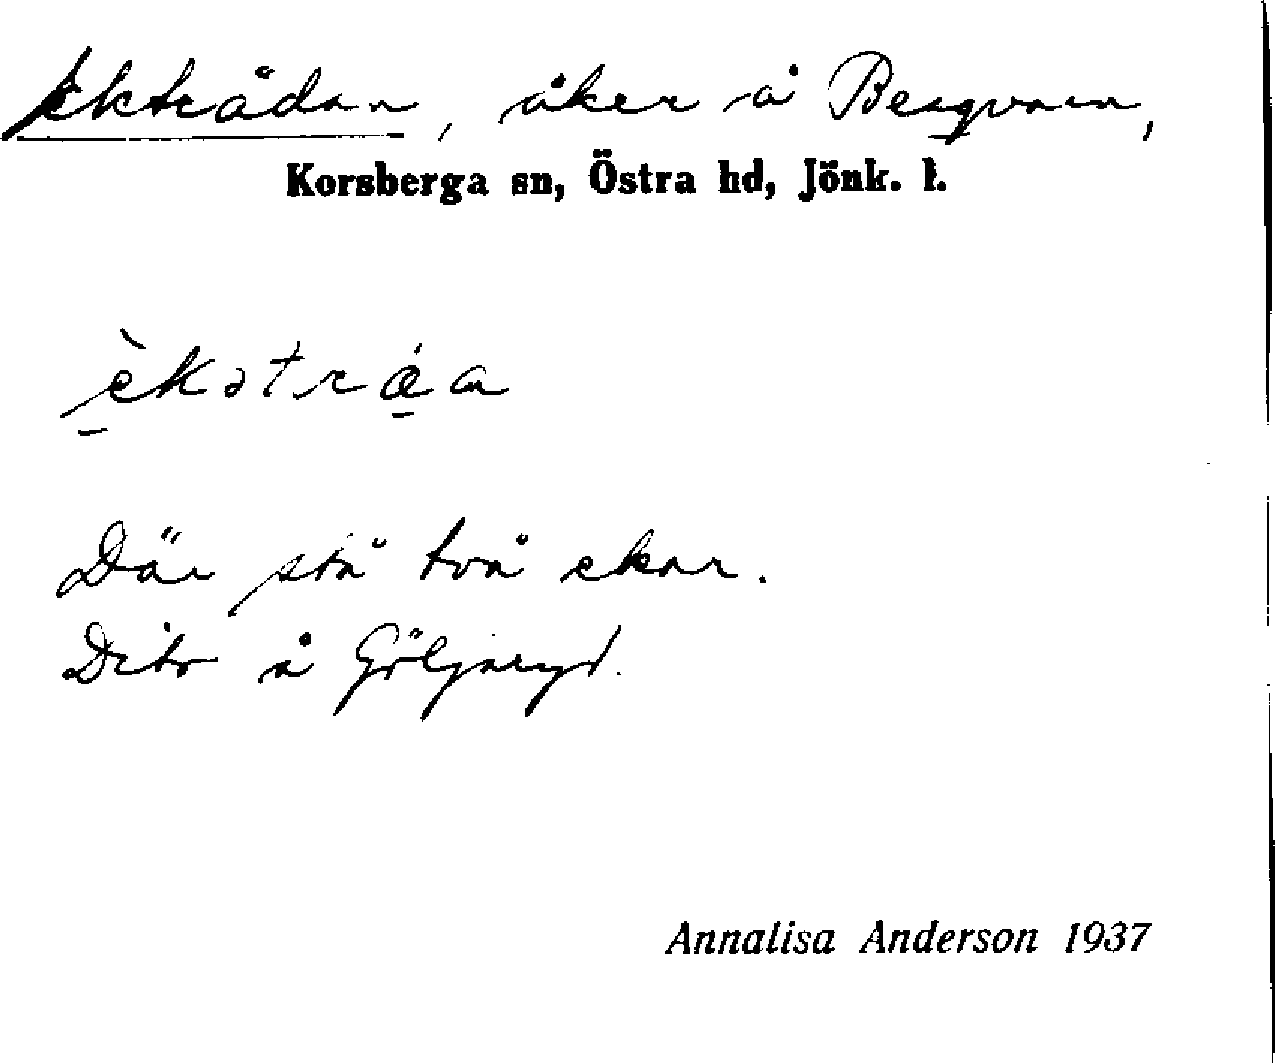 Ekträdan, åker å Bergvarn,
Korsberga sn, Östra hd, Jönk. l.
èkətrǽa
Där stå två ekar.
Dito å Göljaryd.
Annalisa Anderson 1937